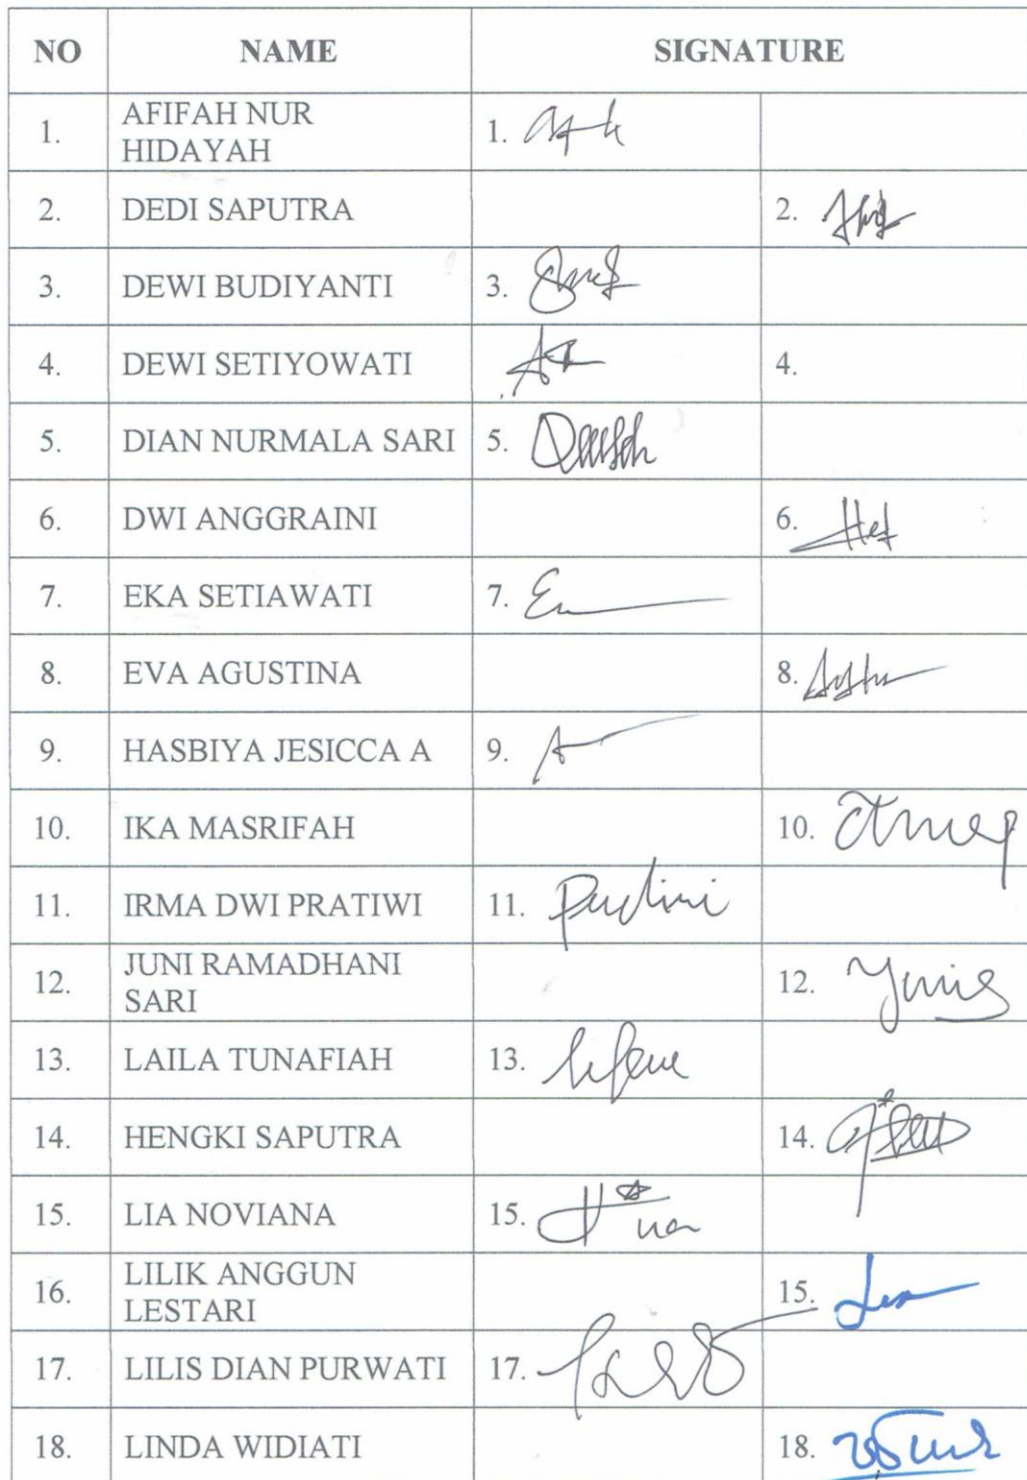 NO NAME SIGNATURE
1. AFIFAH NUR HIDAYAH 1.
2. DEDI SAPUTRA 2.
3. DEWI BUDIYANTI 3.
4. DEWI SETIYOWATI 4.
5. DIAN NURMALA SARI 5.
6. DWI ANGGRAINI 6.
7. EKA SETIAWATI 7.
8. EVA AGUSTINA 8.
9. HASBIYA JESICCA A 9.
10. IKA MASRIFAH 10.
11. IRMA DWI PRATIWI 11.
12. JUNI RAMADHANI SARI 12.
13. LAILA TUNAFIAH 13.
14. HENGKI SAPUTRA 14.
15. LIA NOVIANA 15.
16. LILIK ANGGUN LESTARI 15.
17. LILIS DIAN PURWATI 17.
18. LINDA WIDIATI 18.